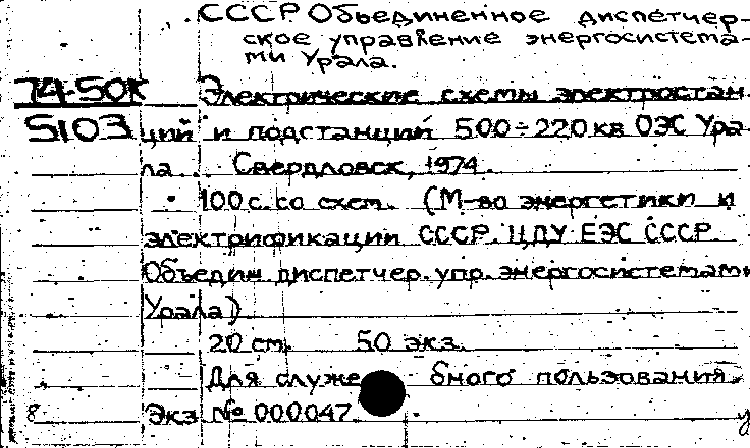 СССР Объединенное диспетчер-
ское управление энергосистема-
ми Урала.
74-50К Электрические схемы электростан-
5103 ций и подстанций 500÷220 кв ОЭС Ура-
ла. Свердловск, 1974.
100 с. со схем. (М-во энергетики и
электрификации СССР. ЦДУ ЕЭС СССР.
Объедин. диспетчер. упр. энергосистемами
Урала)
20 см. 50 экз.
Для служебного пользования.
8 Экз № 000047.